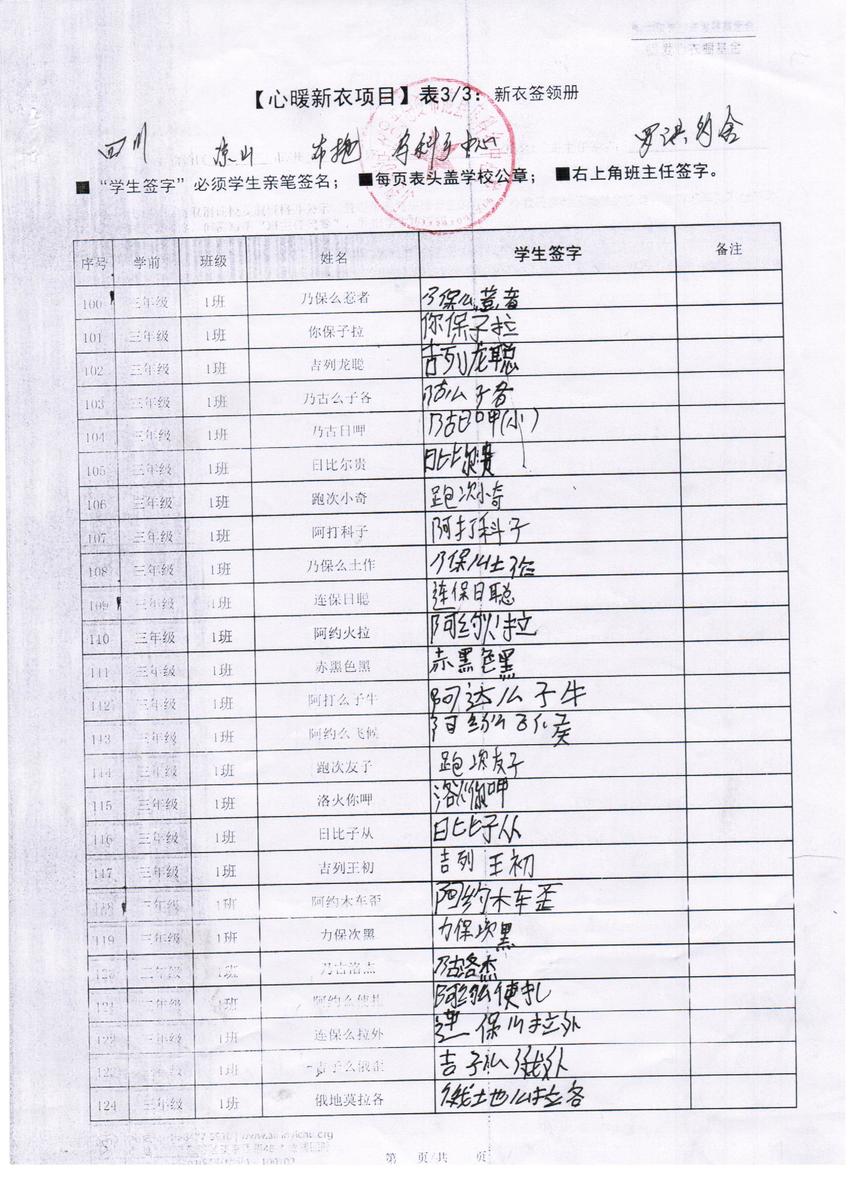 【心暖新衣项目】表3/3：新衣签领册
四川 凉山
■ “学生签字”必须学生亲笔签名； ■每页表头盖学校公章； ■右上角班主任签字。
序号 学前 班级 姓名 学生签字 备注
100 三年级 1班 乃保么惹者 乃保么惹者
101 三年级 1班 你保子拉 你保子拉
102 三年级 1班 吉列龙聪 吉列龙聪
103 三年级 1班 乃古么子各
104 三年级 1班 乃古日呷 乃古日呷(小)
105 三年级 1班 日比尔贵 日比尔贵
106 三年级 1班 跑次小奇 跑次小奇
107 三年级 1班 阿打科子 阿打科子
108 三年级 1班 乃保么土作
109 三年级 1班 连保日聪 连保日聪
110 三年级 1班 阿约火拉 阿约火拉
111 三年级 1班 赤黑色黑 赤黑色黑
112 三年级 1班 阿打么子牛 阿达么子牛
113 三年级 1班 阿约么飞候
114 三年级 1班 跑次友子 跑次友子
115 三年级 1班 洛火你呷 洛火你呷
116 三年级 1班 日比子从 日比子从
117 三年级 1班 吉列王初 吉列王初
118 三年级 1班 阿约木车歪 阿约木车歪
119 三年级 1班 力保次黑 力保次黑
120 三年级 1班 乃古洛杰 乃古洛杰
121 三年级 1班 阿约么使扎 阿约么使扎
122 三年级 1班 连保么拉外
123 三年级 1班 吉子么俄歪
124 三年级 1班 俄地莫拉各
第 页/共 页